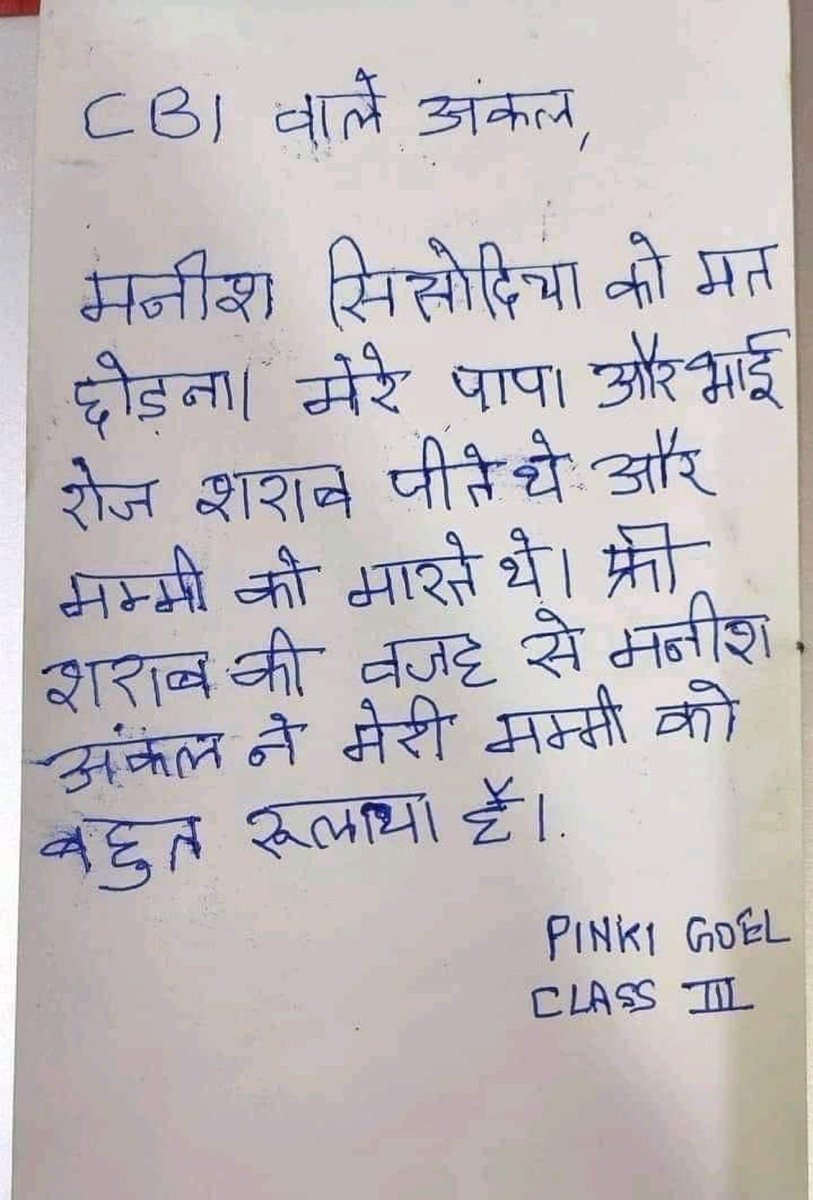 CBI वाले अंकल,
मनीश सिसोदिया को मत
छोड़ना। मेरे पापा और भाई
रोज शराब पीते थे और
मम्मी को मारते थे। फ्री
शराब की वजह से मनीश
अंकल ने मेरी मम्मी को
बहुत रूलाया हैं।.
PINKI GOEL
CLASS III